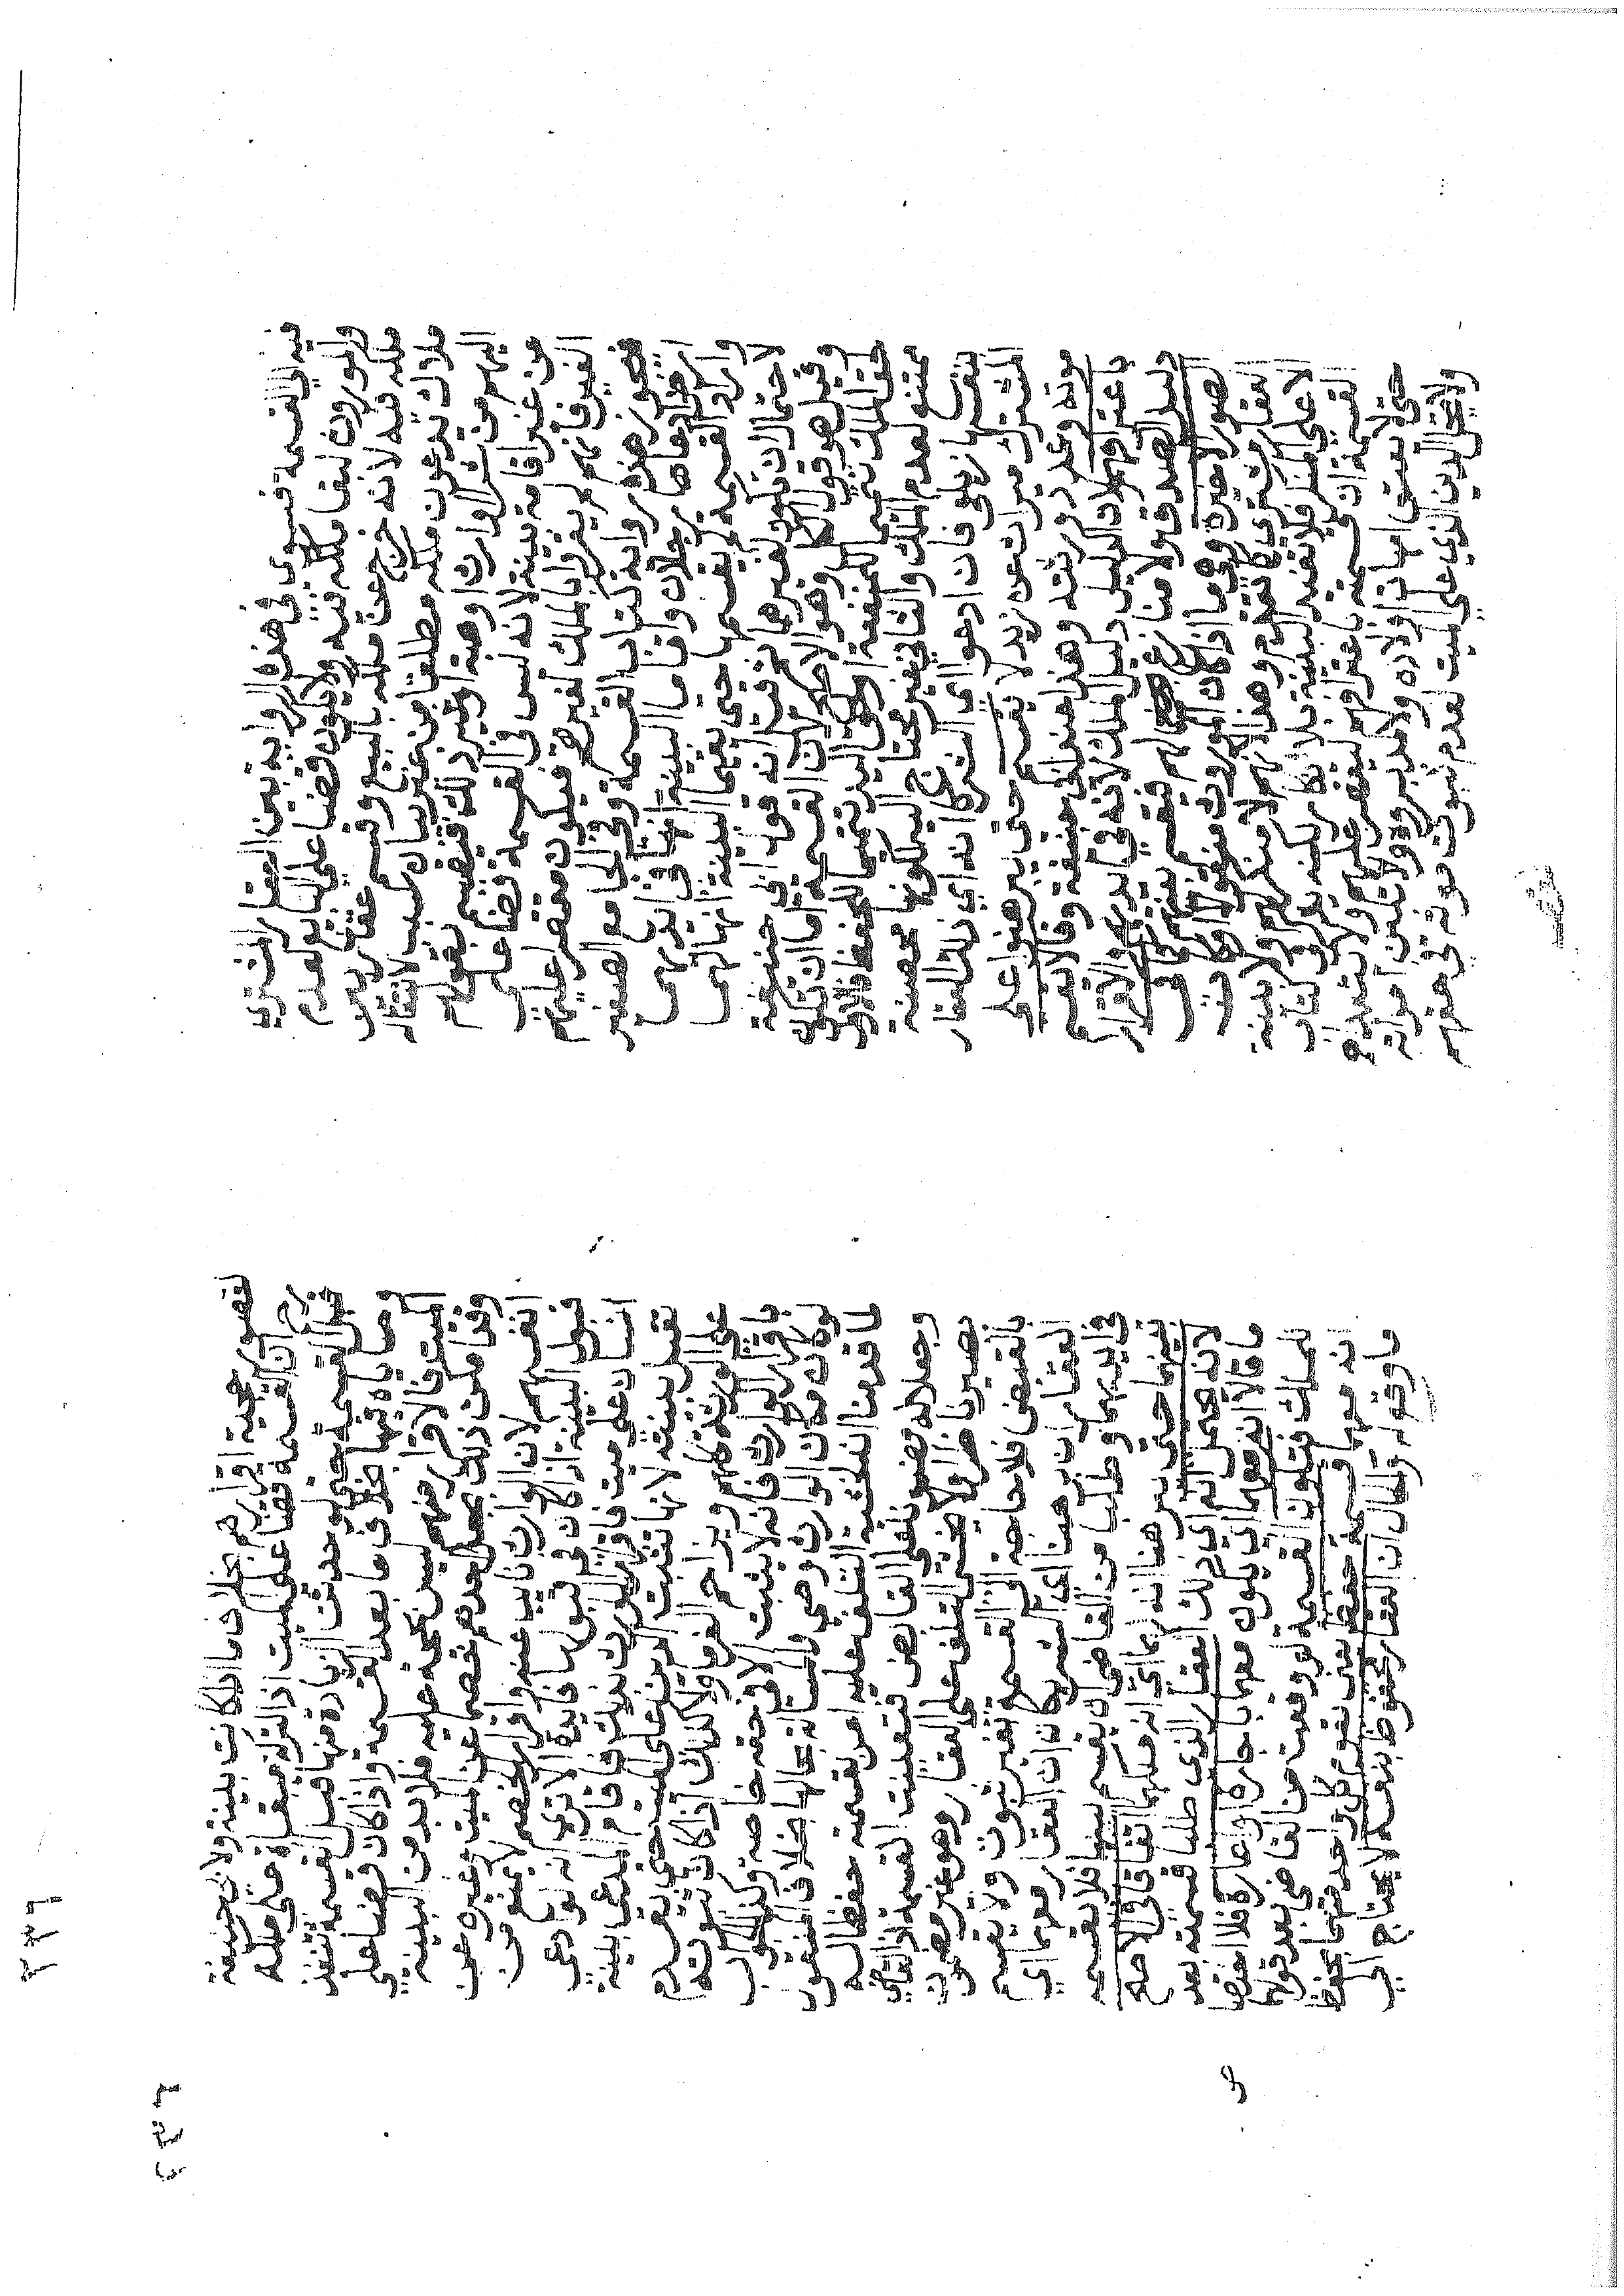 فيه في القسمة فيسوي في هذه الرواية بين العقار المشترى
والموروث لبقا ملكه فيه ولا يكون قضا على البايع لعدم
ملكه فيه لانه خرج عن ملكه بالبيع وقسم عقار يعني
ملاك يدعون ملكه مطلقا من غير بيان سبب لانتقاله
اليهم من شرا او ارث او هبة او غير ذلك فيقسم بقولهم
من غير اقامة بينة لانه ليس في القسمة قضا على
الغير فانهم لم يقروا بالملك لغيرهم فيكون مقتصرا عليهم
فيجوز هذه رواية كتاب القسمة وفي الجامع الصغير
ارض ادعاها رجلان واقاما البينة انها في ايديهما
واراد القسمة لم يقسمها حتى يقيما البينة انها لهما
لاحتمال ان تكون لغيرهما ثم قيل انه قول ابي حنيفة
وقيل هو قول الكل وهو الاصح لان القسمة اما ان تكون
لحق الملك تتميما للمنفعة او لحق اليد تتميما للحفظ فالاول
ممتنع لعدم الملك والثاني غير محتاج اليه لكونها محصنة
بنفسها زيلعي فان ادعوا اي الشركا انه اي ذلك العقار
المشترك ميراث عن زيد لا يقسم حتى يبرهنوا على
موته وعدد ورثته وهذا عند ابي حنيفة وقالا يقسم
باعترافهم لان اليد دليل الملك لانه في ايديهم والاقرار
دليل الصدق ولا منازع لهم فيقسم بينهم كما في
الصور الاخيرة وهي ما اذا كان الموروث منقولا او كان
العقار مشترى كما تقدم وهذا لانهم لا منكر لهم ولا بينة
الا على المنكر فلا تفيد البينة بلا انكار لكنه يذكر في كتاب
القسمة ان قسمته باعترافهم ليقتصر عليهم ولا يتعداه
حتى لا يعتق امهات اولاده ومدبروه ولا تبين امراته
ولا يحل الدين الذي على الميت لعدم ثبوت موته في حقهم
لقصور حجية اقرارهم بخلاف ما اذا كانت بينة ولابي حنيفة
رح ان القسمة قضا على الميت اذ التركة مبقاة على ملكه
قبل القسمة حتى لو حدثت الزيادة منها قبل القسمة تنفذ
وصاياه فيها بخلاف ما بعد القسمة واذا كان قضا على
الميت فالاقرار منهم ليس بحجة عليه فلا بد من البينة
وقد امكن ذلك بجعل احدهم خصما عن الميت وغيره عن
انفسهم لان الوارث نايب عنه واقرار الخصم لا يمنع من
قبول البينة اذا كان في قبولها فايدة الا ترى انه لو ادعى
انسان على ميت فاقر الوارث بذلك فاقام المدعي بينة
تقبل بينته لانها تثبت الدين على الميت حتى يقدم
على الورثة كلهم ويزاحم الغرما ولا كذلك اذا كان ثبوته
باقرار الوارث فانه لا يثبت الا في حقه خاصة وكذا
لو كان مكان الوارث وصي والمسالة بحالها بخلاف المنقول
لما قدمنا انه يخشى التلف عليه بقسمته حفظا له
وجعلاله مضمونا على القابض فتعينت القسمة اذ
يصير ناظرا ولا يخشى التلف على العقار وهو غير مضمون
بالقبض فلا حاجة الى القسمة لغير ثبوت ولا يقسم
العقار ان برهنا اي الشريكان ان العقار معهما اي
في ايديهما وطلبا من القاضي ان يقسم بينهما فلا يقسمه
بينهما حتى يبرهنا انه لهما اي انه ملكهما اتفاقا في الاصح
لانه يحتمل انه اي ذلك العقار الذي طلبا قسمته بعد
ما قالا انه معهما ان يكون معهما باجارة او اعارة فلا اقتضا
للملك فتكون القسمة لو وقعت من القاضي بعد قولهما
انه معهما قسمة حفظ بمعنى كل واحد منهما بحفظ
ما وقع له والحال ان العقار محفوظ بنفسه لا يحتاج الى